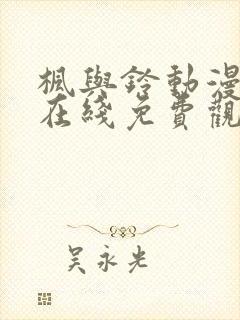 楓與鈴動漫
在綫免費觀
吴永光